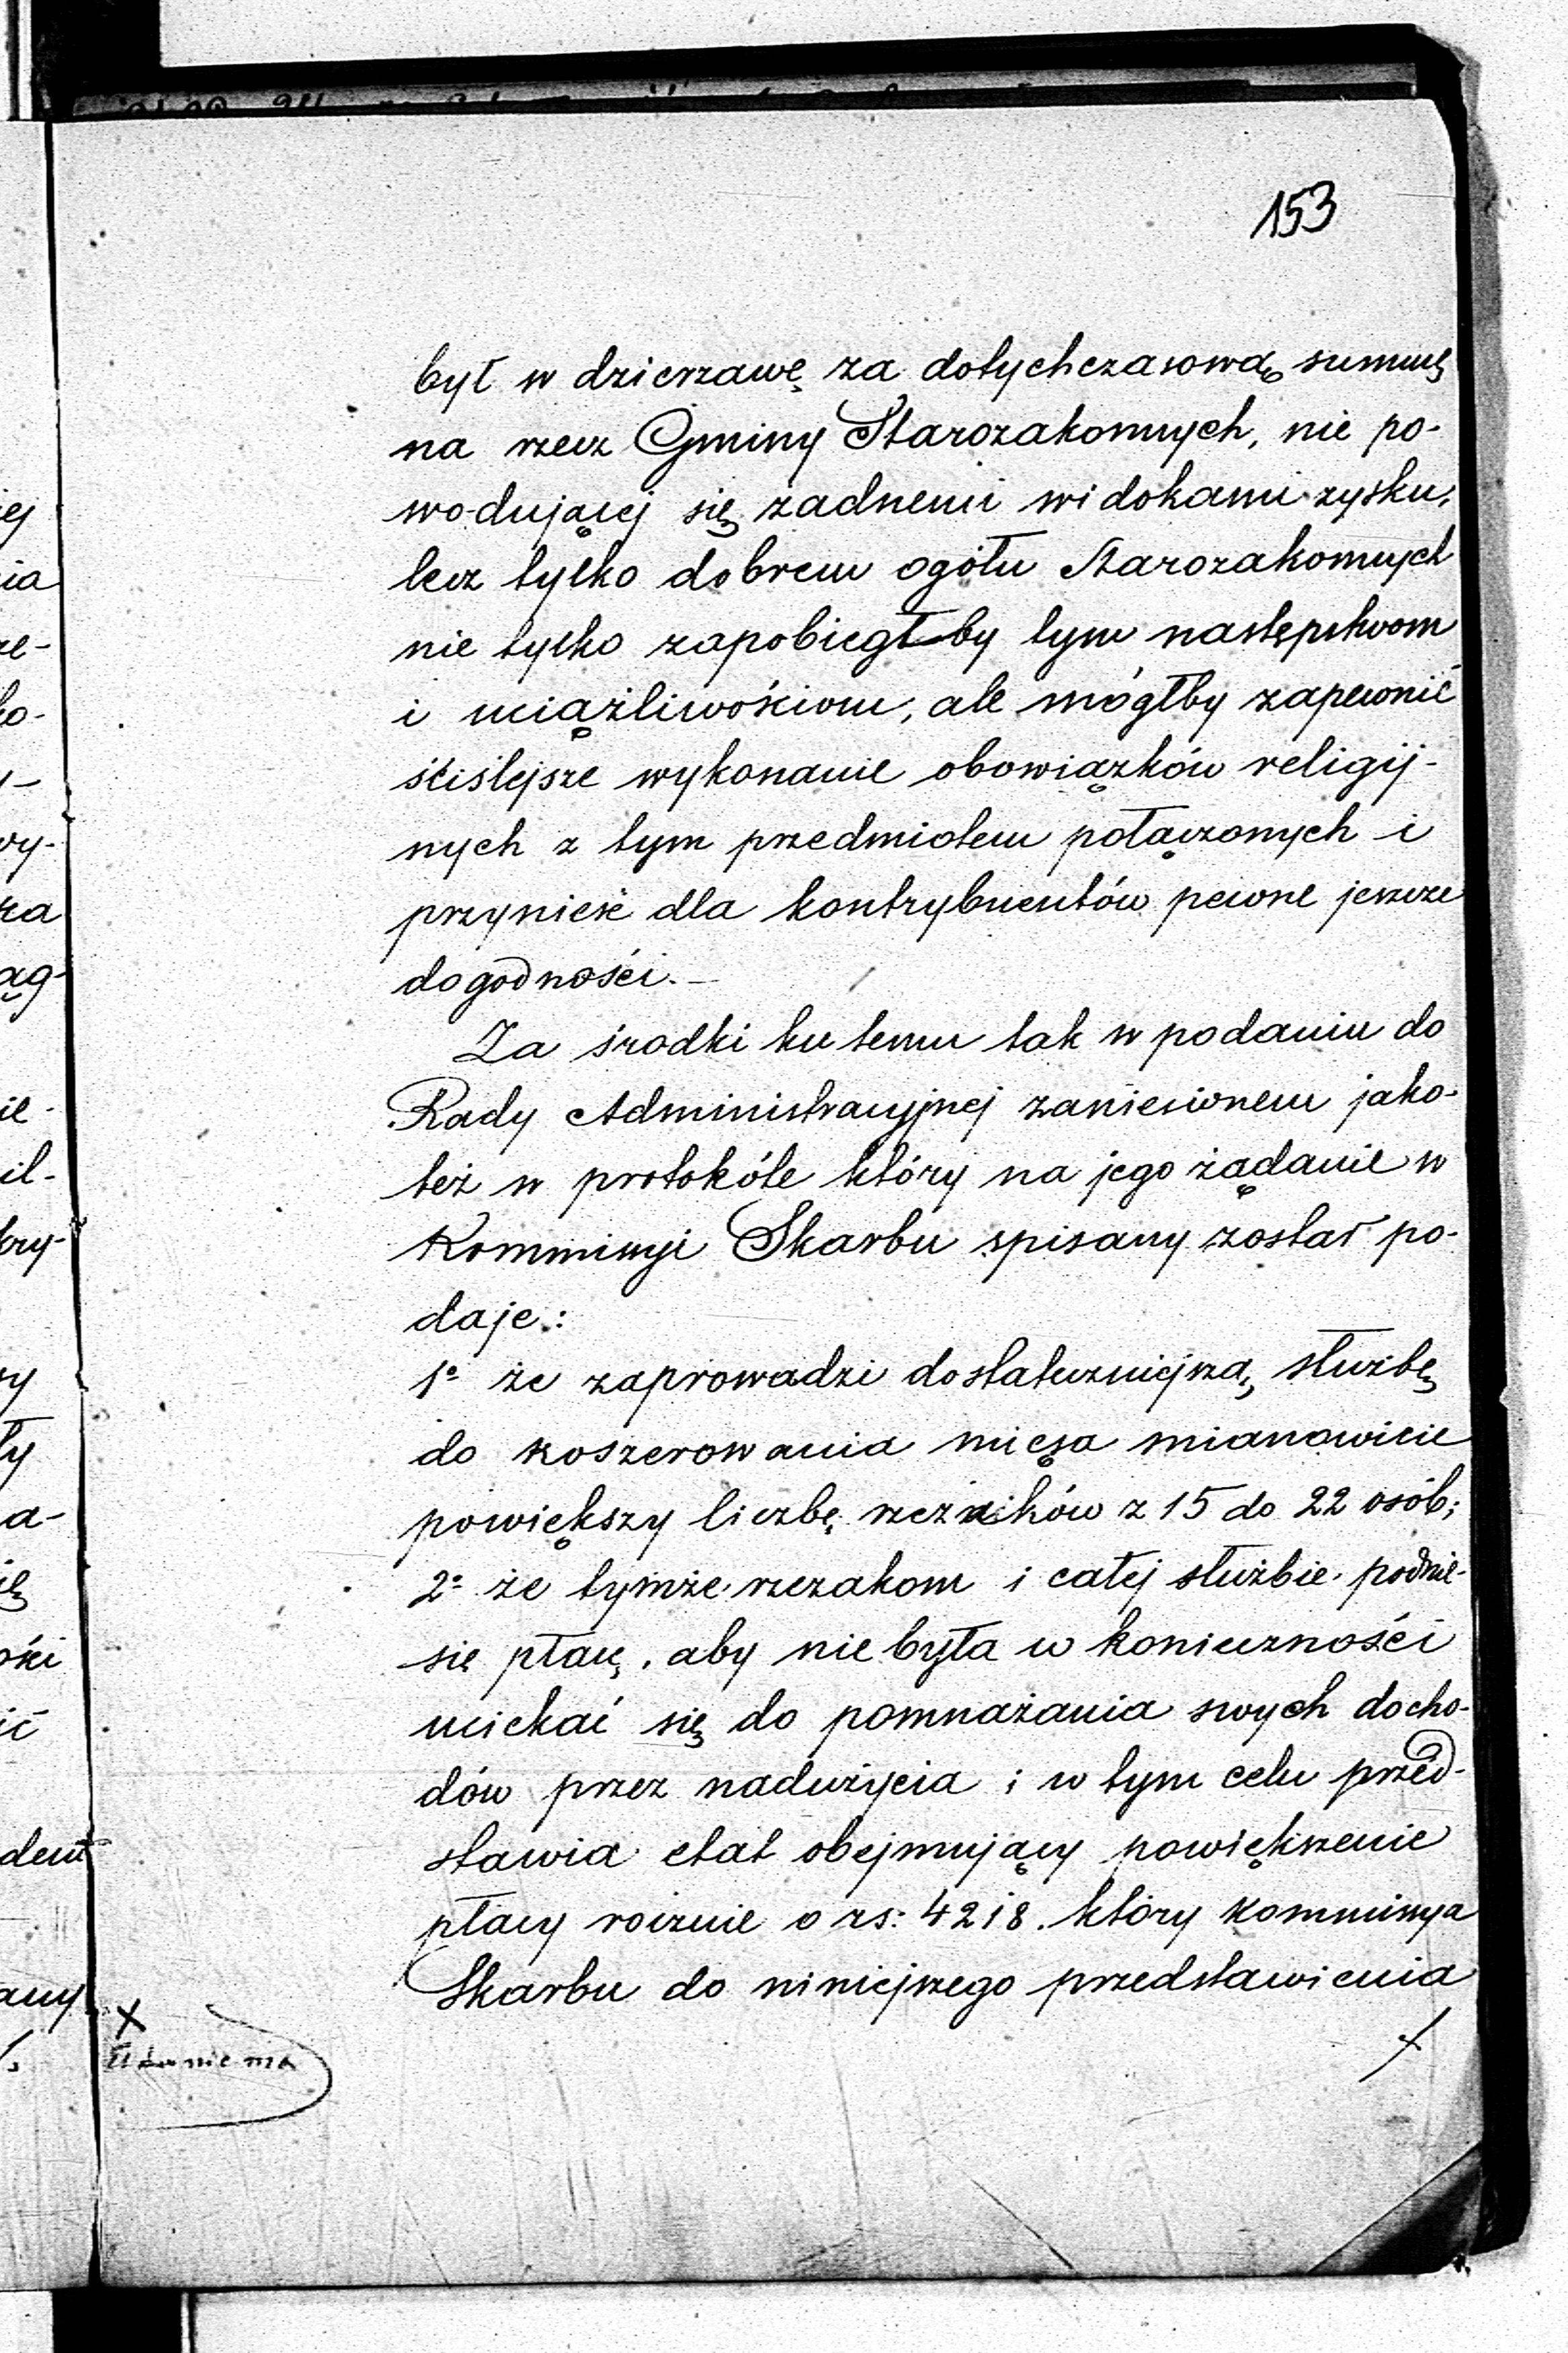 153
był w dzierzawę za dotychczasową summę
na rzecz Gminy Starozakonnych, nie po-
wodującej się żadnemi widokami zysku,
lecz tylko dobrem ogółu Starozakonnych
nie tylko zapobiegłby tym następstwom
i uciążliwościom, ale mógłby zapewnić
ściślejsze wykonanie obowiązków religij-
nych z tym przedmiotem połączonych i
przynieść dla kontrybuentów pewne jeszcze
dogodności. –
Za środki ku temu tak w podaniu do
Rady Administracyjnej zaniesionem jako-
też w protokóle który na jego żądanie w
Kommissyi Skarbu spisany został po-
daje:
1º że zaprowadzi dostateczniejszą służbę
do koszerowania mięsa mianowicie
powiększy liczbę rzezaków z 15 do 22 osób;
2º że tymże rzezakom i całej służbie podnie-
sie płacę, aby nie była w konieczności
uciekać się do pomnażania swych docho-
dów przez nadużycia; w tym celu przed-
stawia etat obejmujący powiększenie
płacy rocznie o rs: 4218. który Kommissya
Skarbu do niniejszego przedstawienia